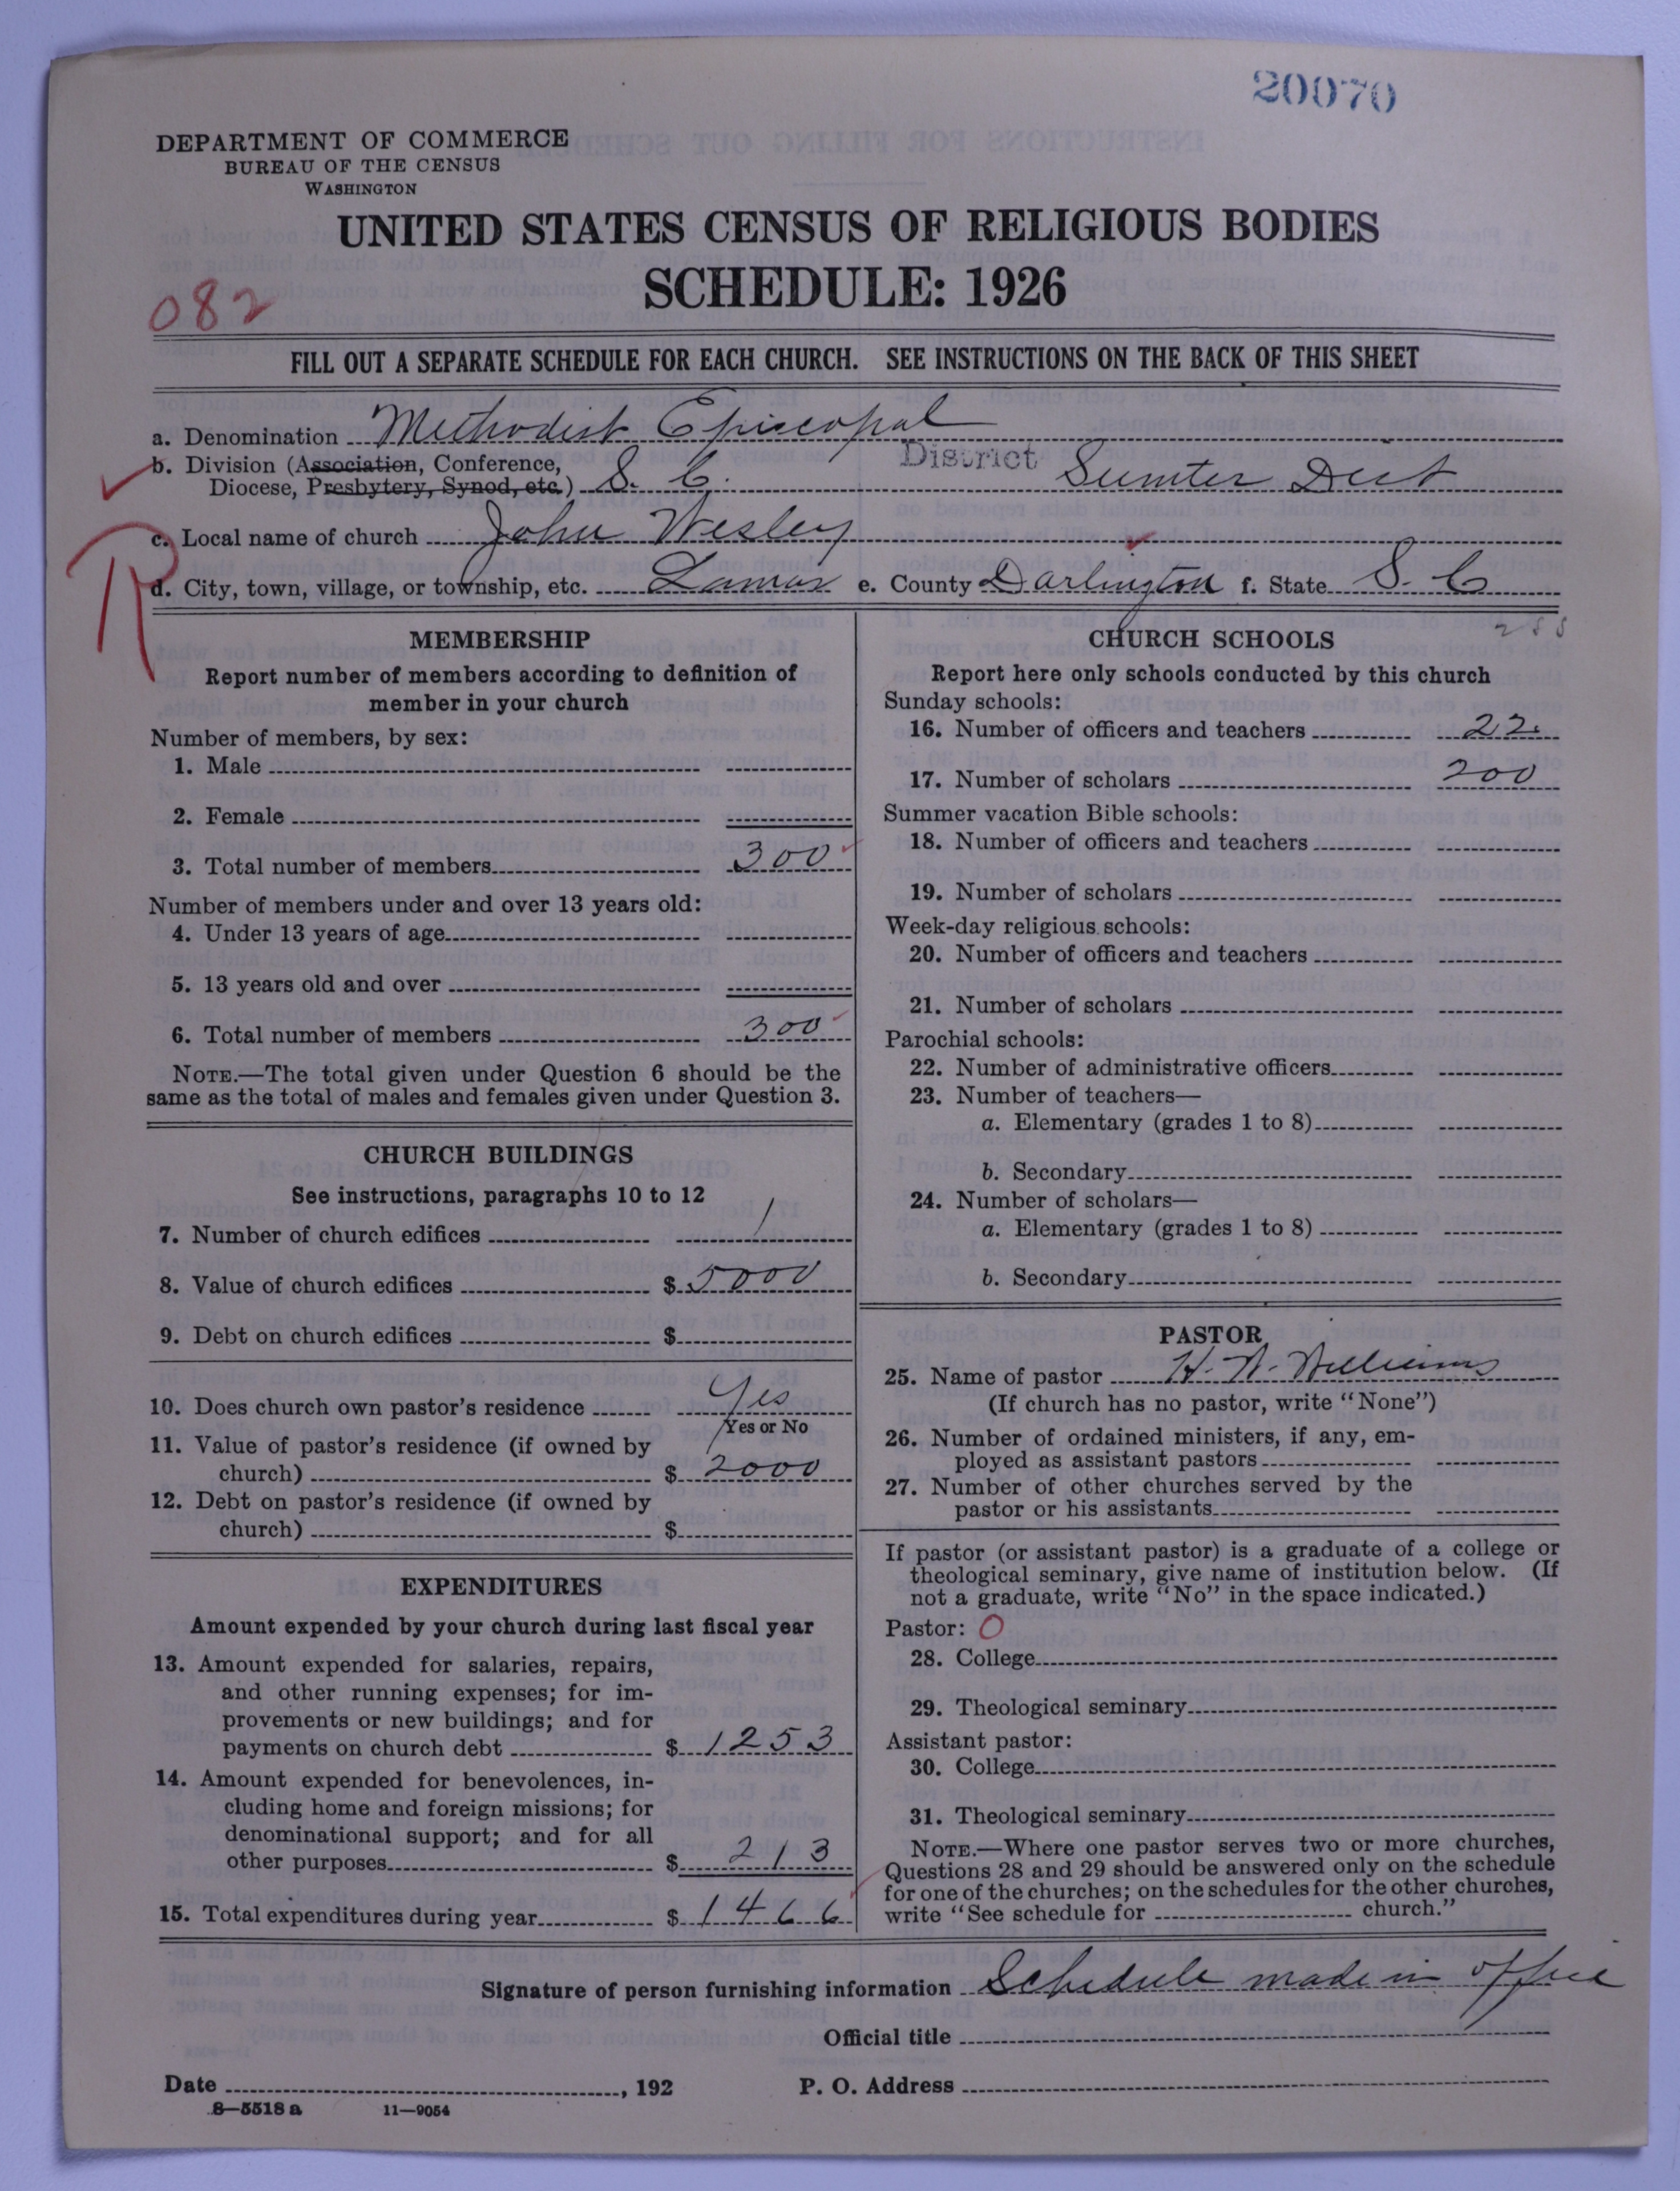 20070
DEPARTMENT OF COMMERCE
BUREAU OF THE CENSUS
WASHINGTON
UNITED STATES CENSUS OF RELIGIOUS BODIES
SCHEDULE: 1926
082
FILL OUT A SEPARATE SCHEDULE FOR EACH CHURCH. SEE INSTRUCTIONS ON THE BACK OF THIS SHEET
a. Denomination Methodist Episcopal
b. Division (Association, Conference, Diocese, Presbytery, Synod, etc.) S. C. District Sumter Dist
c. Local name of church John Wesley
R
d. City, town, village, or township, etc. Lamar e. County Darlington f. State S. C
MEMBERSHIP
Report number of members according to definition of
member in your church
Number of members, by sex:
1. Male
2. Female
3. Total number of members 300
Number of members under and over 13 years old:
4. Under 13 years of age
5. 13 years old and over
6. Total number of members 300
NOTE.—The total given under Question 6 should be the
same as the total of males and females given under Question 3.
CHURCH BUILDINGS
See instructions, paragraphs 10 to 12
7. Number of church edifices 1
8. Value of church edifices $ 5000
9. Debt on church edifices $
10. Does church own pastor's residence Yes
Yes or No
11. Value of pastor's residence (if owned by
church) $ 2000
12. Debt on pastor's residence (if owned by
church) $
EXPENDITURES
Amount expended by your church during last fiscal year
13. Amount expended for salaries, repairs,
and other running expenses; for im-
provements or new buildings; and for
payments on church debt $ 1253
14. Amount expended for benevolences, in-
cluding home and foreign missions; for
denominational support; and for all
other purposes $ 213
15. Total expenditures during year $ 1466
CHURCH SCHOOLS
Report here only schools conducted by this church
Sunday schools:
16. Number of officers and teachers 22
17. Number of scholars 200
Summer vacation Bible schools:
18. Number of officers and teachers
19. Number of scholars
Week-day religious schools:
20. Number of officers and teachers
21. Number of scholars
Parochial schools:
22. Number of administrative officers
23. Number of teachers—
a. Elementary (grades 1 to 8)
b. Secondary
24. Number of scholars—
a. Elementary (grades 1 to 8)
b. Secondary
PASTOR
25. Name of pastor H. W. Williams
(If church has no pastor, write "None")
26. Number of ordained ministers, if any, em-
ployed as assistant pastors
27. Number of other churches served by the
pastor or his assistants
If pastor (or assistant pastor) is a graduate of a college or
theological seminary, give name of institution below. (If
not a graduate, write "No" in the space indicated.)
Pastor: O
28. College
29. Theological seminary
Assistant pastor:
30. College
31. Theological seminary
NOTE.—Where one pastor serves two or more churches,
Questions 28 and 29 should be answered only on the schedule
for one of the churches; on the schedules for the other churches,
write "See schedule for church."
Signature of person furnishing information Schedule made in office
Official title
Date , 192 P. O. Address
8—5518 a 11—9054